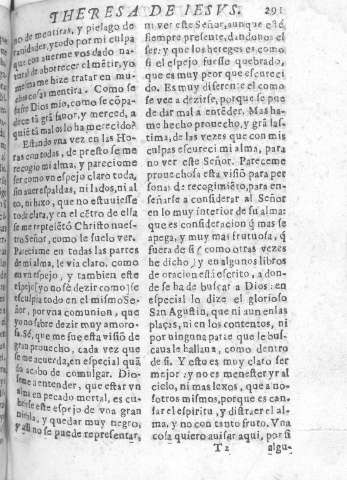 THERESA DE IESVS. 291
no de mentiras, y pielago de
uanidades, y todo por mi culpa
que con auerme vos dado na-
tural de aborrecer el mẽtir, yo
mesma me hize tratar en mu-
chas cosas mentira. Como se
sufre Dios mio, como se cõpa-
dece tã grã fauor, y merced, a
quiẽ tã mal os lo ha merecido?
Estando vna vez en las Ho-
ras con todas, de presto se me
recogio mi alma, y pareciome
ser como vn espejo claro toda,
sin auer espaldas, ni lados, ni al
to, ni bixo, que no estuuiesse
toda clara, y en el cẽtro de ella
se me represẽtò Christo nues-
tro Señor, como le suelo ver.
Pareciame en todas las partes
de mi alma, le via claro, como
en vn espejo, y tambien este
espejo (yo no sè dezir como) se
esculpia todo en el mismo Se-
ñor, por vna comunion, que
yo no sabre dezir muy amoro-
sa. Sè, que me fue esta visiõ de
gran prouecho, cada vez que
se me acuerda, en especial quã
do acabo de comulgar. Dio-
seme a entender, que estar vn
alma en pecado mortal, es cu-
brirse este espejo de vna gran
niebla, y quedar muy negro,
y assi no se puede representar,
ni ver este Señor, aunque estè
siempre presente, dandonos el
ser: y que los hereges es como
si el espejo fuesse quebrado,
que es muy peor que escureci
do. Es muy diferente el como
se vee a dezirse, porque se pue
de dar mal a entẽder. Mas ha-
me hecho prouecho, y grã las-
tima, de las vezes que con mis
culpas escureci mi alma, para
no ver este Señor. Pareceme
prouechosa esta visiõ para per
sonas de recogimiẽto, para en-
señarse a considerar al Señor
en lo muy interior de su alma:
que es consideracion q̃ mas se
apega, y muy mas frutuosa, q̃
fuera de si (como otras vezes
he dicho) y en algunos libros
de oracion està escrito, a don-
de se ha de buscar a Dios: en
especial lo dize el glorioso
San Agustin, que ni aun en las
plaças, ni en los contentos, ni
por ninguna parte que le bus-
caua le hallaua, como dentro
de si. Y esto es muy claro ser
mejor: y no es menester yr al
cielo, ni mas lexos, que a no-
sotros mismos, porque es can-
sar el espiritu, y distraer el al-
ma, y no con tanto fruto. Vna
cosa quiero auisar aqui, por si
T 2 algu-